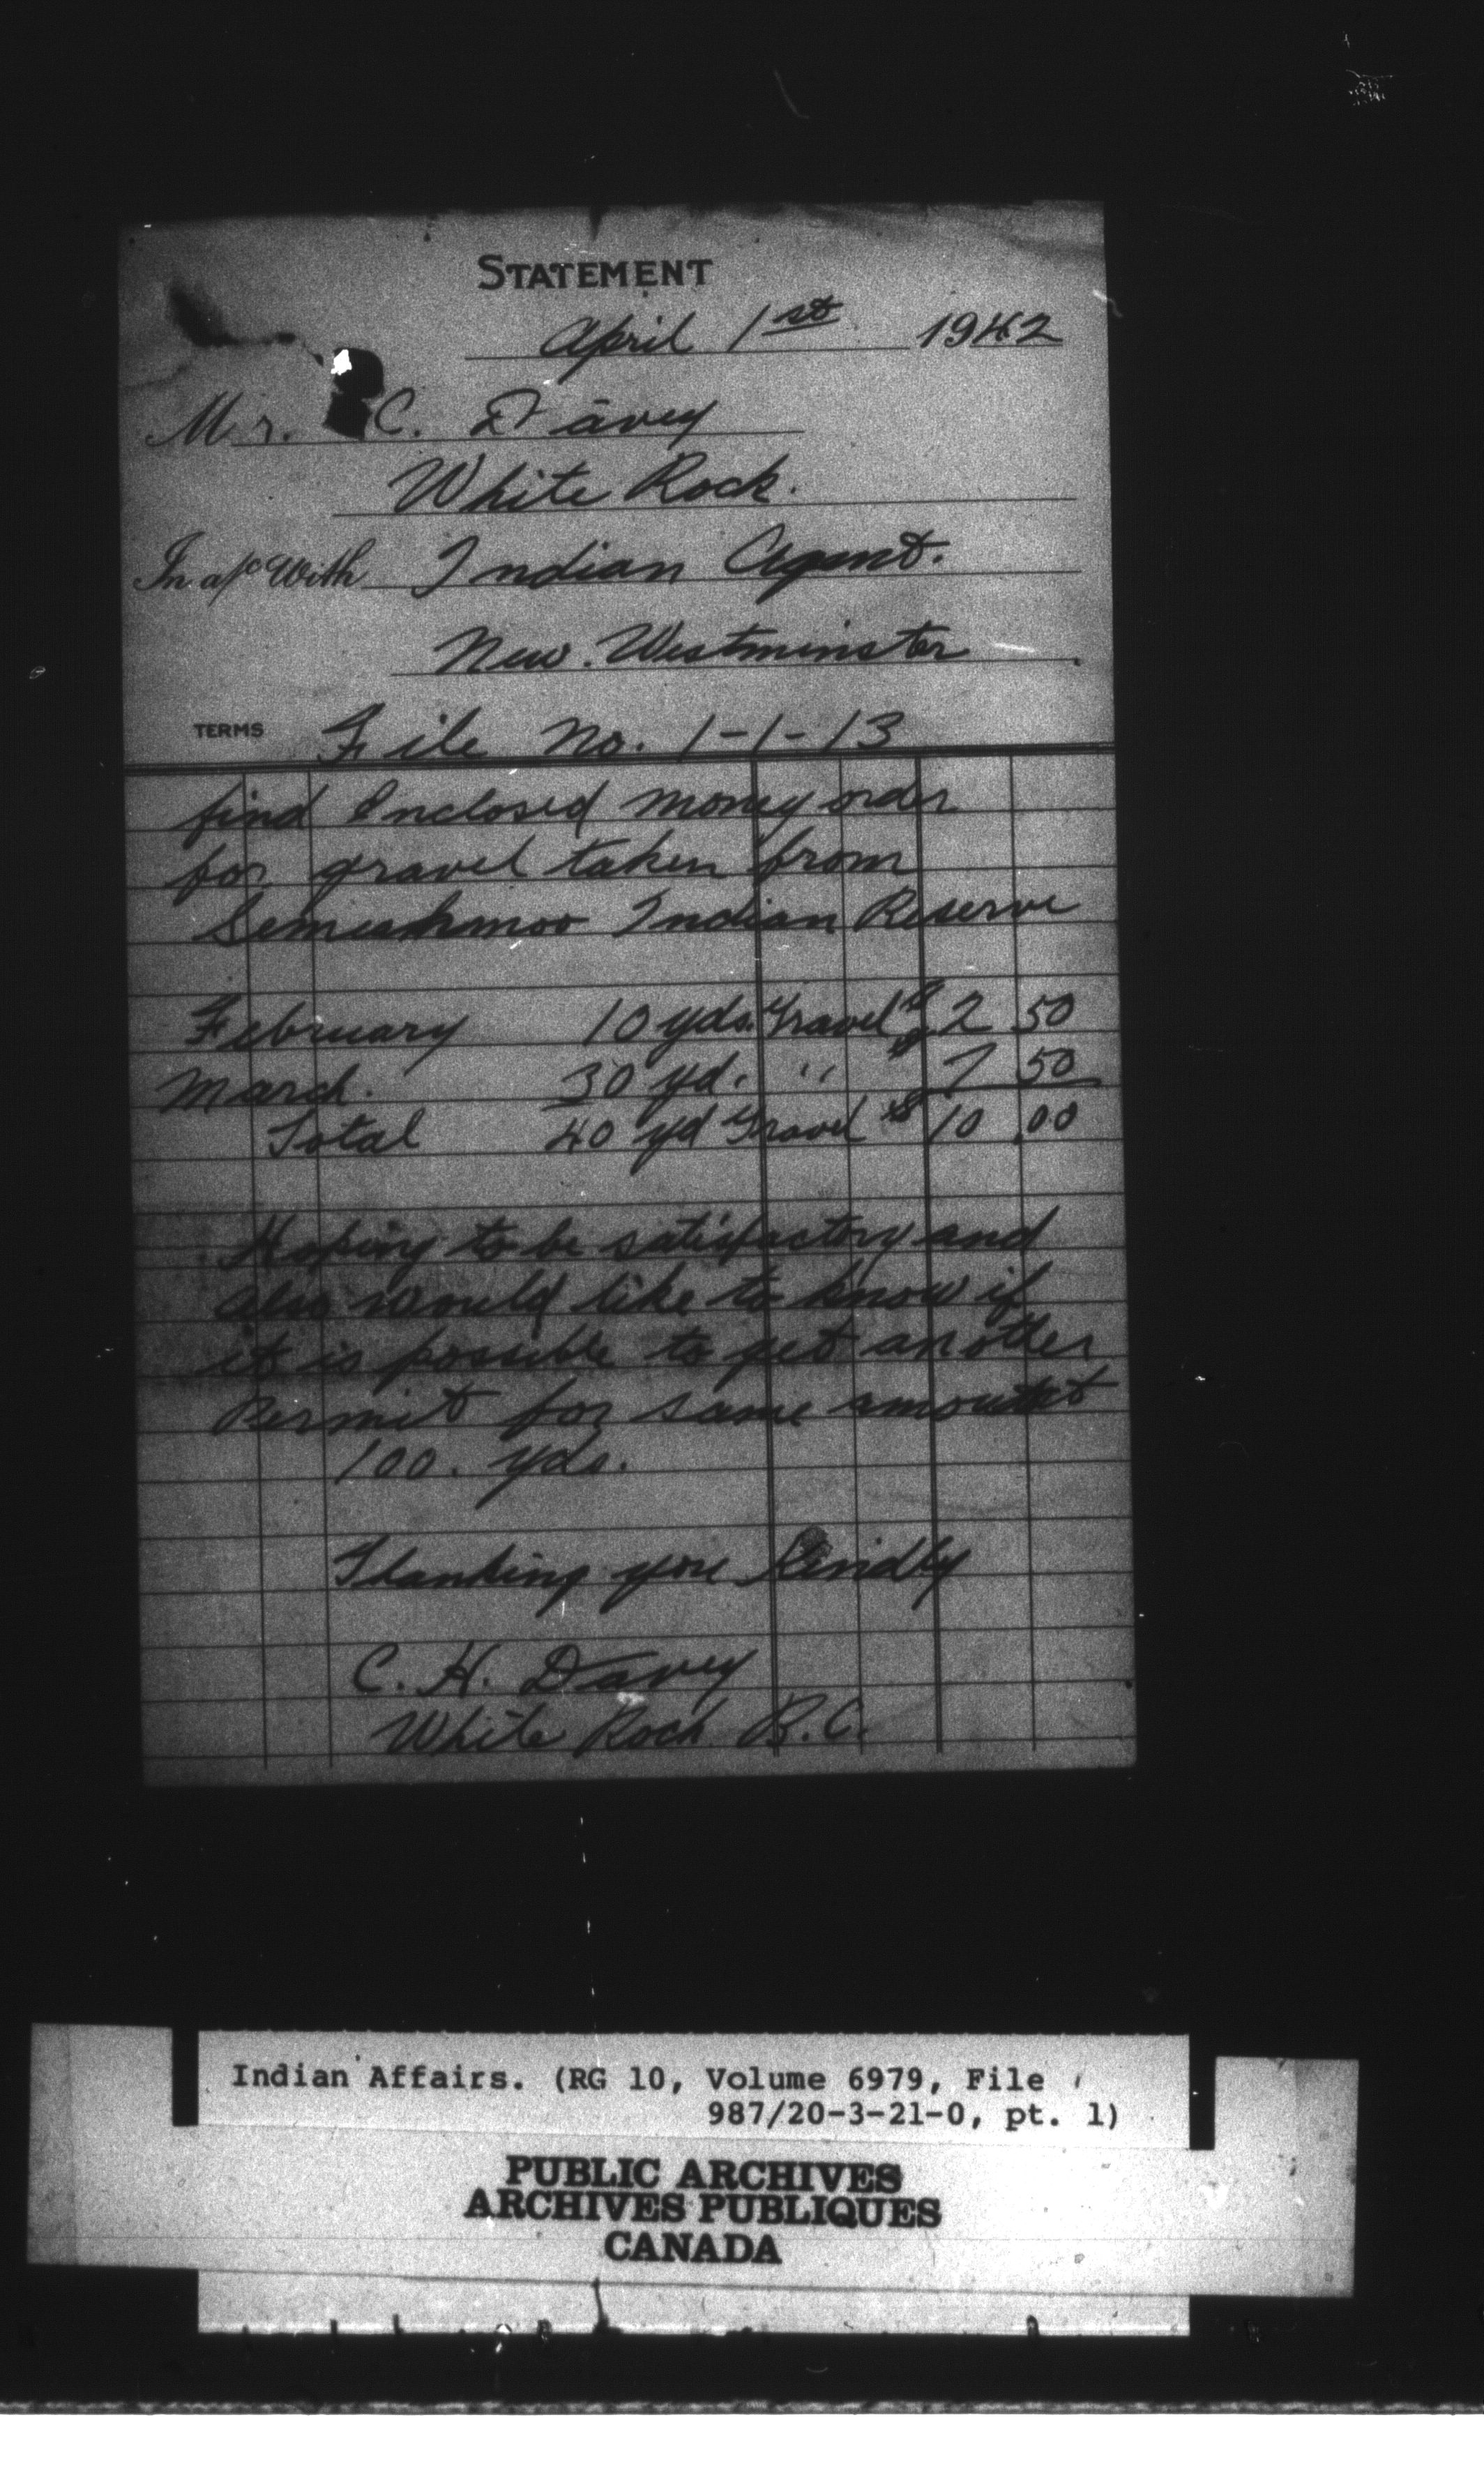 STATEMENT
April 1st 1942
Mr. C. Davey
White Rock.
In a/c With Indian Agent.
New. Westminster
TERMS File No. 1-1-13
find Enclosed money order
for gravel taken from
Semiahmoo Indian Reserve
February 10 yds. Gravel $ 2 50
March. 30 yd. " $ 7 50
Total 40 yd Gravel $ 10.00
Hoping to be satisfactory and
also would like to know if
it is possible to get another
Permit for same amount
100. yds.
Thanking you Kindly
C. H. Davey
White Rock B.C.
Indian Affairs. (RG 10, Volume 6979, File
987/20-3-21-0, pt. 1)
PUBLIC ARCHIVES
ARCHIVES PUBLIQUES
CANADA